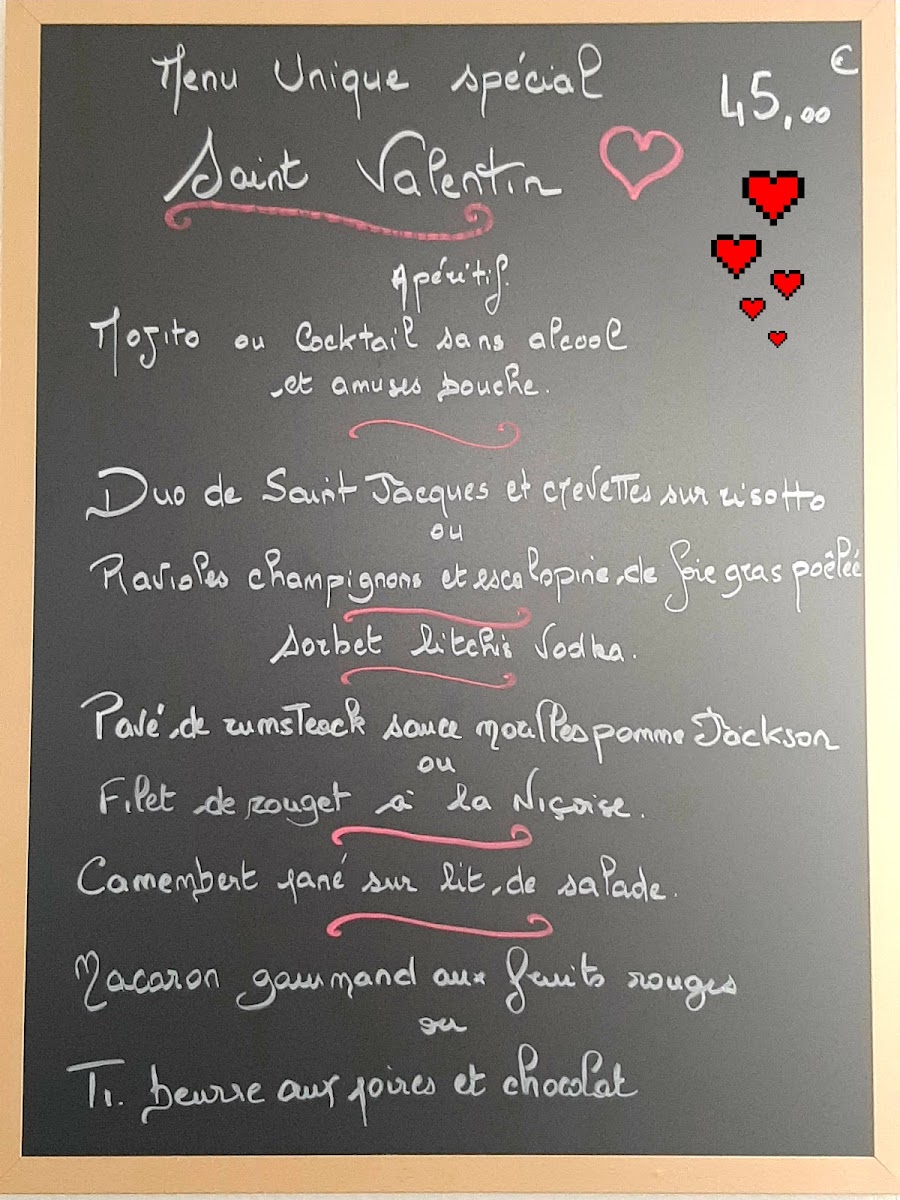 Menu Unique spécial
45,00 €
Saint Valentin
Apéritif.
Mojito ou Cocktail sans alcool
et amuses bouche.
Duo de Saint Jacques et crevettes sur risotto
ou
Ravioles champignons et escalopine de foie gras poêlée
Sorbet litchis Vodka.
Pavé de rumsteack sauce morilles pomme Jackson
ou
Filet de rouget à la Niçoise.
Camembert pané sur lit de salade.
Macaron gourmand aux fruits rouges
ou
Ti. beurre aux poires et chocolat